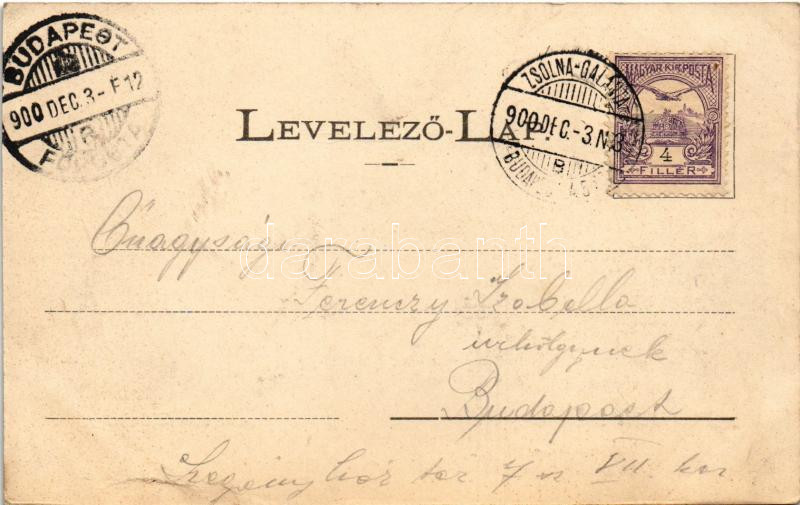 BUDAPEST
900 DEC. 3 - F 12
ZSOLNA-GALÁNTA
900 DEC. - 3. N 3
B
MAGYAR KIR. POSTA
4
FILLÉR
LEVELEZŐ-LAP.
Őnagysága
Ferenczy Izabella
úrhölgynek
Budapest
Szegényház tér 7 sz VII. ker
darabanth